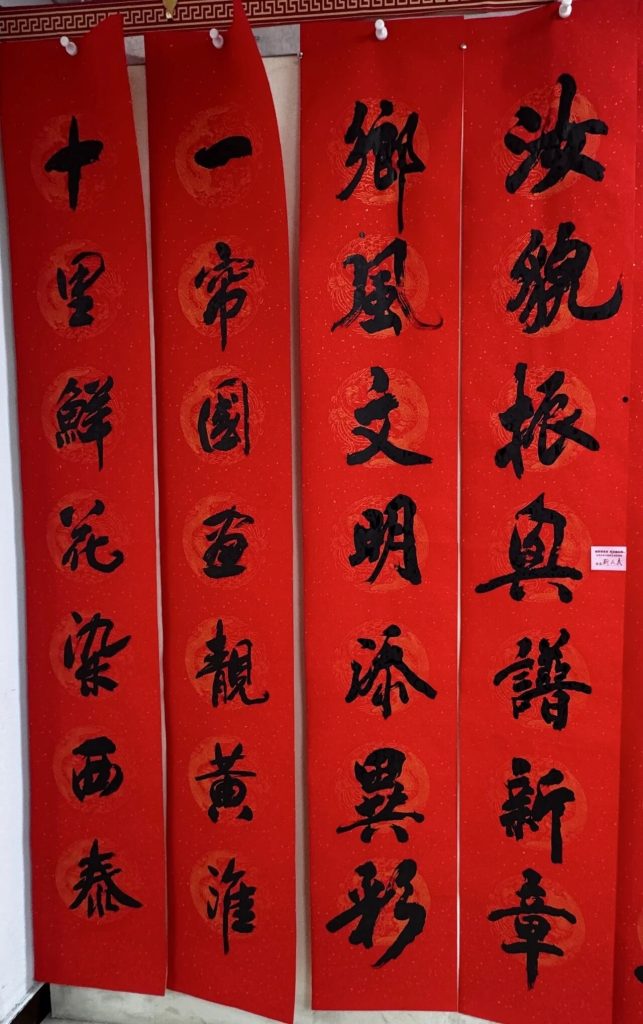 汝貌振興譜新章
鄉風文明添異彩
一帘圖畫靚黃淮
十里鮮花染西泰